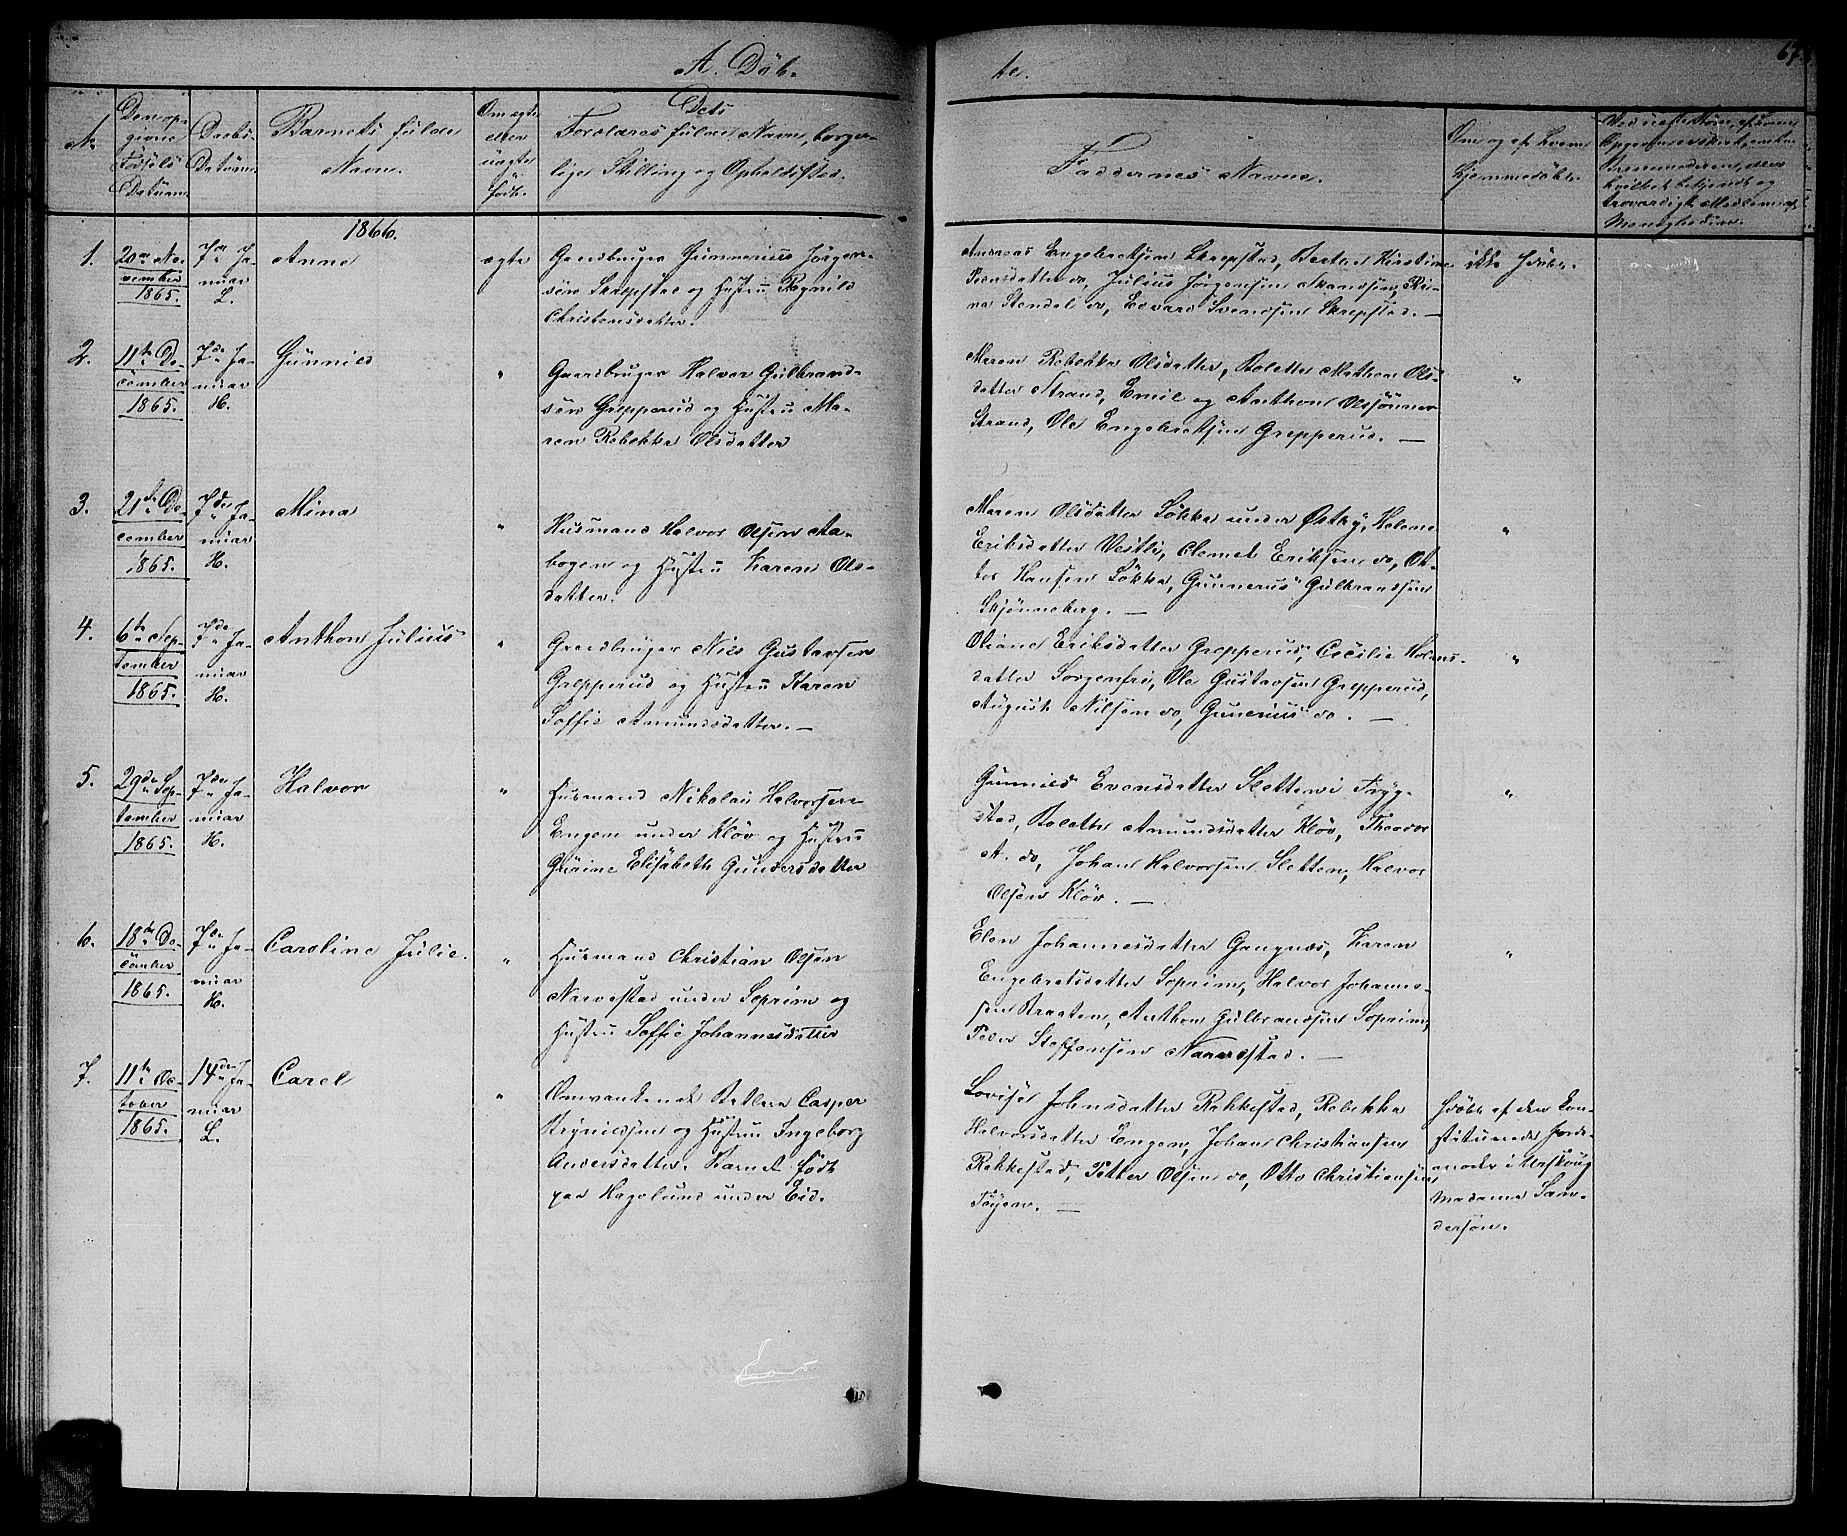 A. Døb-
te.
67.
No
Den op-
givne
Fødsels
Datum
Daabs-
Datum
Barnets fulde
Navn.
Om ægte
eller
uægte
født.
Dets
Forældres fulde Navne, borger-
lige Stilling og Opholdssted.
Faddernes Navne.
Om og af hvem
hjemmedøbt.
1866.
1.
20de No-
vember
1865.
7de Ja-
nuar
L.
Anne
ægte
Gaardbruger Gunnerius Jørgen-
sen Skrepstad og Hustru Ragnild
Christensdatter.
Andreas Engebretsen Skrepstad, Berthe Kirstine
do, Julius Jørgensen
Stendal do, Edvard Svendsen Skrepstad. —
ikke Hjdøbt.
2.
11te De-
cember
1865.
7de Ja-
nuar
H.
Gunnild
"
Gaardbruger Halvor Gulbrand-
sen Grepperud og Hustru Ma-
ren Rebekka Olsdatter
Maren Rebekka Olsdatter, Bolette Mathea Ols-
datter Strand, Emil og Anthon Olsønner
Strand, Ole Engebretsen Grepperud. —
"
3.
21de De-
cember
1865.
7de Ja-
nuar
H.
Mina
"
Husmand Halvor Olsen Aa-
bogen og Hustru Karen Ols-
datter.
Maren Olsdatter Løkka under Østby, Helene
Eriksdatter Vestli, Clemet Eriksen do,
Hansen Løkka, Gunnerus Gulbrandsen
Skjønneberg. —
"
4.
6te Sep-
tember
1865.
7de Ja-
nuar
H.
Anthon Julius
"
Gaardbruger Nils Gustavsen
Grepperud og Hustru Karen
Soffie Amundsdatter. —
Oliane Eriksdatter Grepperud, Cecilie
datter Sorgenfri, Ole Gustavsen Grepperud,
August Nilsen do, Gunerius do. —
"
5.
29de Sep-
tember
1865.
7de Ja-
nuar
H.
Halvor
"
Husmand Nikolai Halvorsen
Engen under Kløv og Hustru
Gurine Elisabeth Gundersdatter
Gunnild Evensdatter Sletten i Tryg-
stad, Bolette Amundsdatter Kløv, Theodor
A. do, Johan Halvorsen Sletten, Halvor
Olsen Kløv. —
"
6.
18de De-
cember
1865.
7de Ja-
nuar
H.
Caroline Julie.
"
Husmand Christian Olsen
Narvestad under Soprim og
Hustru Soffie Johannesdatter
Elen Johannesdatter Gangnæs, Karen
Engebretsdatter Soprim, Halvor Johannes-
sen Braaten, Anthon Gulbrandsen Soprim,
Peder Steffensen Narvestad. —
"
7.
11te Oc-
tober
1865.
14de Ja-
nuar
L.
Carel
"
Omvankende Betlere Casper
Brynildsen og Hustru Ingeborg
Andersdatter. Barnet født
paa Haglund under Eid.
Lovise Johnsdatter Rakkestad, Rebekka
Halvorsdatter Engen, Johan Christiansen
Rakkestad, Petter Olsen do, Otto Christiansen
Tøyen. —
Hjdøbt af den Con-
stituerede Jorde-
moder i Urskoug
Madame San-
dersøn.